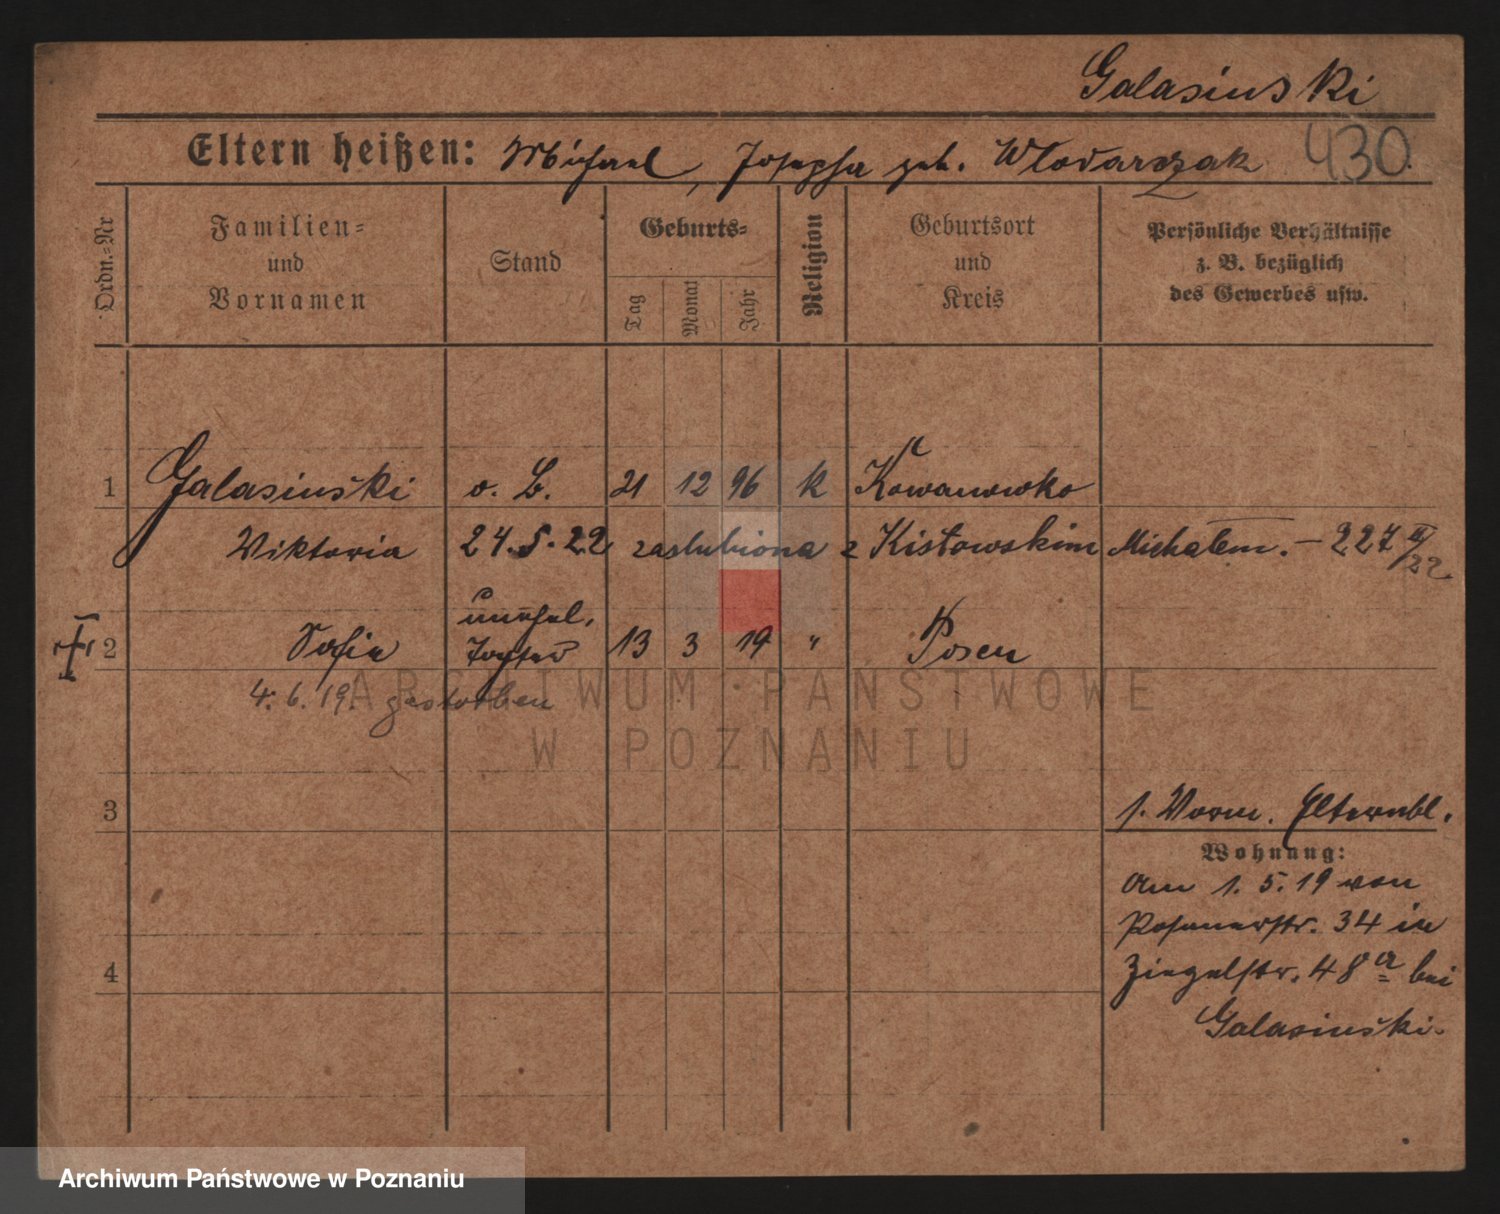 Galasinski
Eltern heißen: Michael, Josepha geb. Wlodarczak 430
Ordn.-Nr
Familien- und Vornamen
Stand
Geburts-
Tag Monat Jahr
Religion
Geburtsort und Kreis
Persönliche Verhältnisse
z. B. bezüglich
des Gewerbes usw.
1 Galasinski o. B. 21 12 96 k Kowanowko
Wiktoria 24.5.22 zaslubiona z Kistowskim Michalem. – 227 II/22
unehel.
2 Sofie Tochter 13 3 19 " Posen
4. 6. 19. gestorben
ARCHIWUM PAŃSTWOWE
W POZNANIU
3
1. Vorm. Elternbl.
Wohnung:
Am 1. 5. 19 von
Posenerstr. 34 in
4 Ziegelstr. 48 a bei
Galasinski.
Archiwum Państwowe w Poznaniu